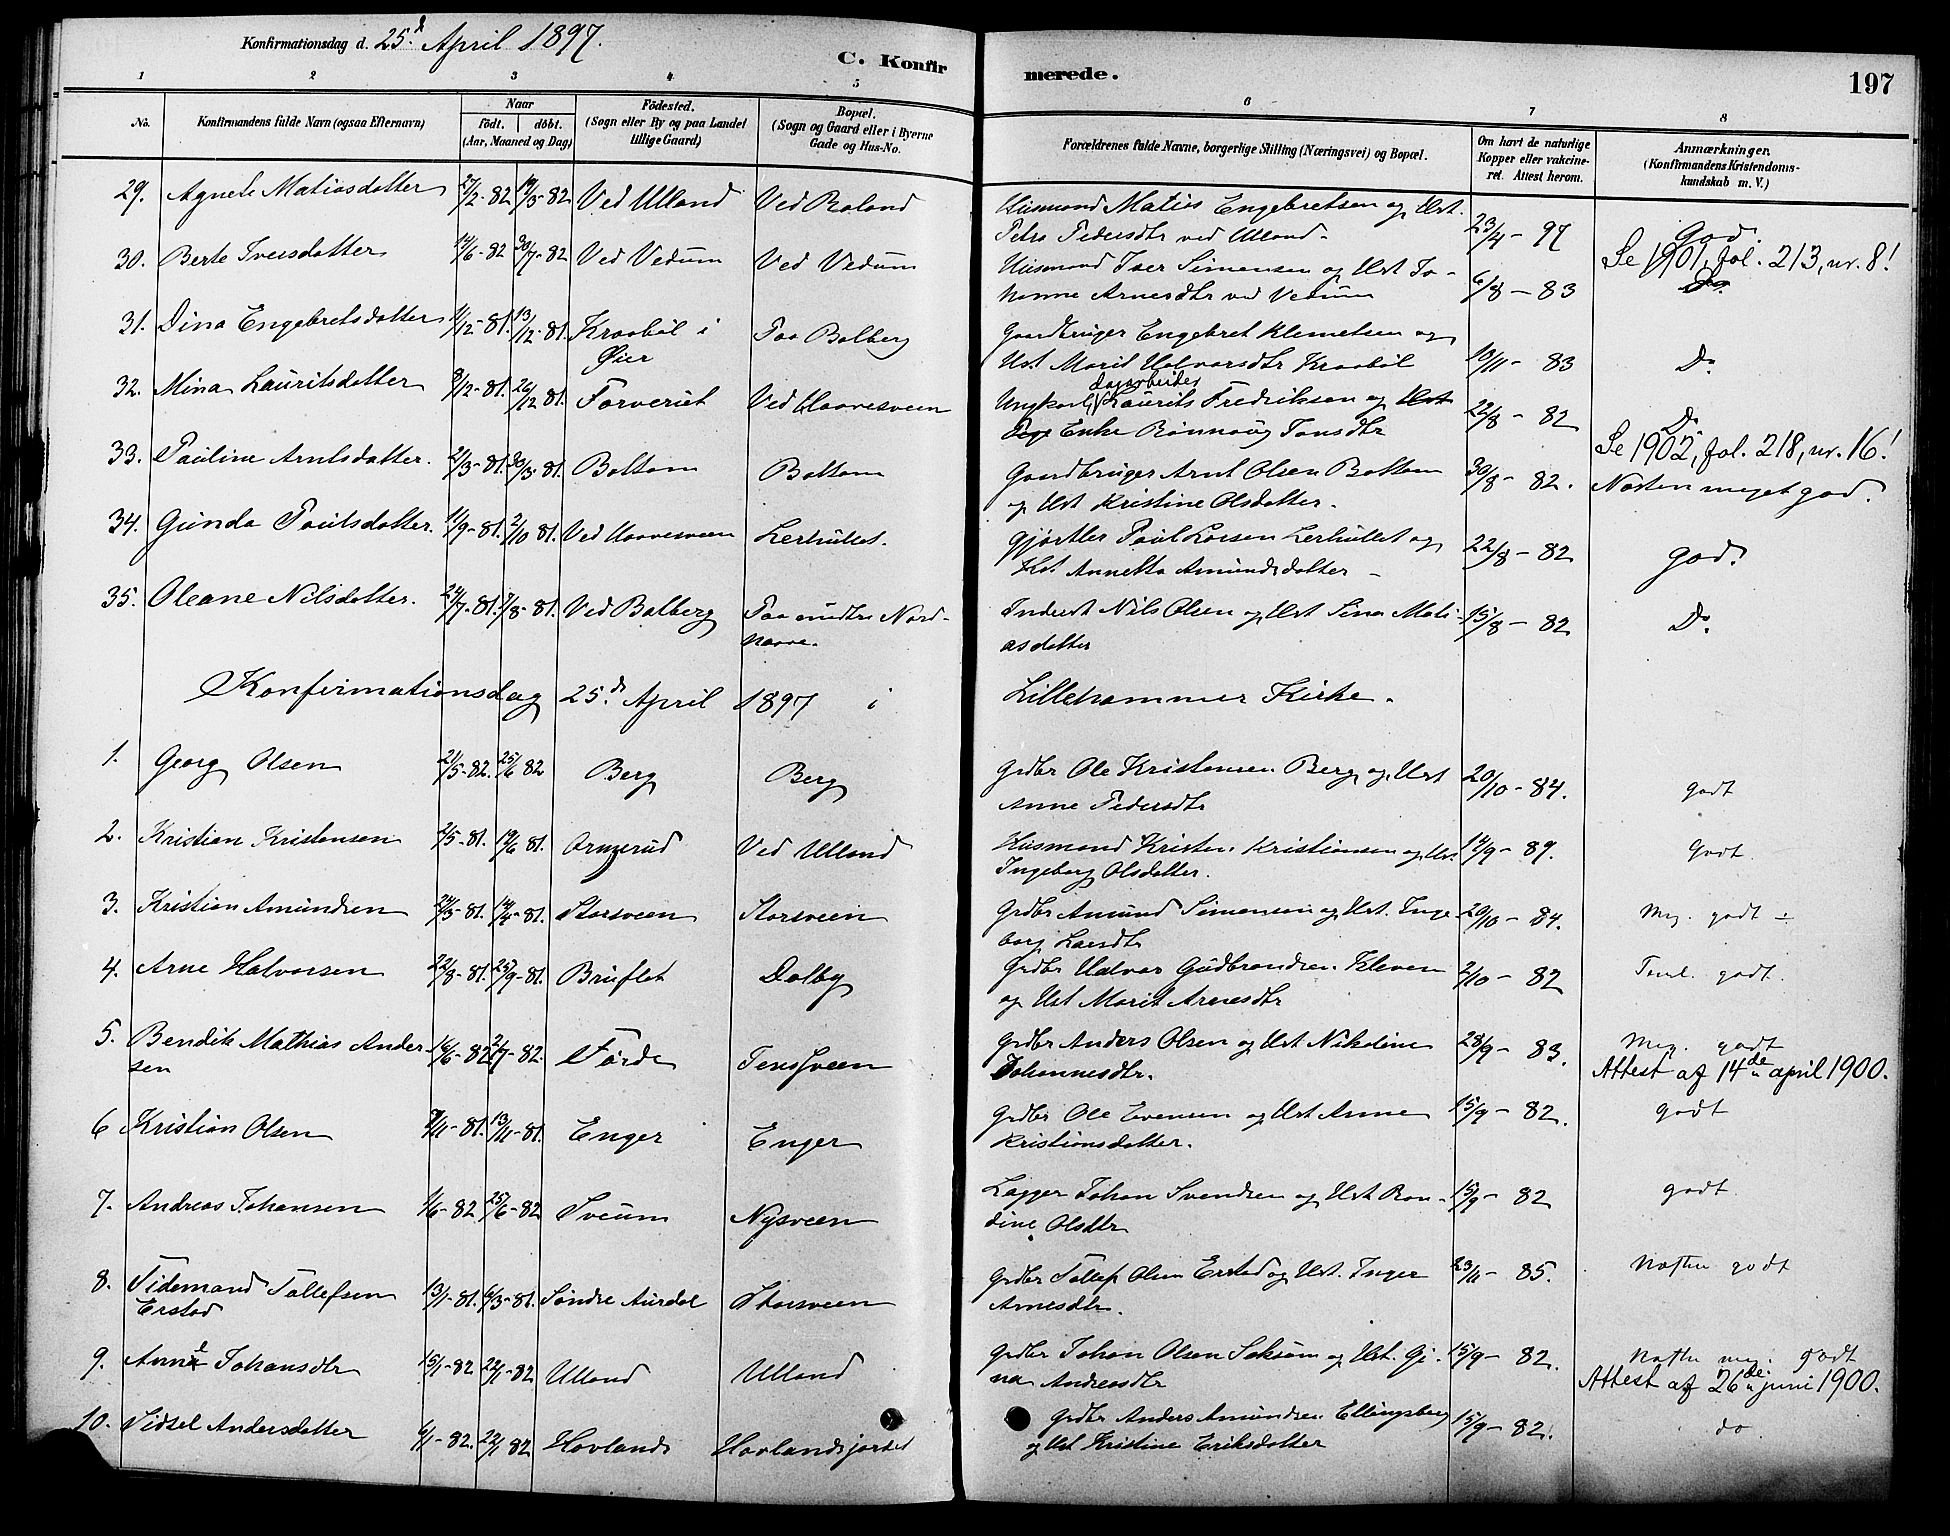 Konfirmationsdag d. 25d April 1897.
C. Konfirmerede.
197
1 2 3 4 5 6 7 8
No.
Konfirmandens fulde Navn (ogsaa Efternavn)
Naar
födt. döbt.
(Aar, Maaned og Dag)
Födested.
(Sogn eller By og paa Landet
tillige Gaard)
Bopæl.
(Sogn og Gaard eller i Byerne
Gade og Hus-No.
Forældrenes fulde Navne, borgerlige Stilling (Næringsvei) og Bopæl.
Om havt de naturlige
Kopper eller vakcine-
ret. Attest herom.
Anmærkninger.
(Konfirmandens Kristendoms-
kundskab m. V.)
29. Agnete Matiasdatter 27/2-82 19/3-82 Ved Ulland Ved Roland Husmand Matias Engebretsen og Hst. 23/4-97 God.
Petra Pedersdtr ved Ulland.
30. Berte Iversdatter 14/6-82 30/7-82 Ved Vedum Ved Vedum Husmand Iver Simensen og Hst Jo- 6/8-83 Se 1901, fol. 213, nr. 8!
hanne Arnesdtr ved Vedum Do.
31. Dina Engebretsdatter 1/12-81. 13/12-81. Kraabøl i Paa Balberg Gaardbruger Engebret Klemetsen og
Øier Hst. Marit Halvorsdtr Kraabøl 13/11-83 Do
32. Mina Lauritsdatter 8/12-81. 26/12 81. Forveriet Ved Haavesveen Ungkarl, dagarbeider Laurits Fredriksen og Hst 22/8-82 Do
Pige Enke Rønnaug Tonsdtr
33. Pauline Arntsdatter. 2/3-81. 30/3-81. Bottom Bottom Gaardbruger Arnt Olsen Bottom 30/8-82. Se 1902, fol. 218, nr. 16!
og Hst Kristine Olsdatter. Næsten meget god.
34. Gunda Paulsdatter. 11/9-81. 2/10 81. Ved Haavesveen Lerhullet. Gjørtler Paul Larsen Lerhullet og 22/8-82 god.
Hst. Annette Amundsdatter
35. Oleane Nilsdatter. 24/7-81. 7/8-81. Ved Balberg Paa nedre Nord- Inderst Nils Olsen og Hst Sina Mati- 15/8-82 Do.
haave. asdatter
Konfirmationsdag 25de April 1897 i Lillehammer Kirke.
1. Georg Olsen 21/5-82. 25/6 82 Berg Berg Grdbr Ole Kristensen Berg og Hst 20/10-84. godt
Anne Pedersdtr
2. Kristian Kristensen 2/5-81. 19/6 81. Ved Ulland Husmand Kristen Kristiansen og Hst. 14/9-89. Godt.
Ingeborg Olsdatter.
3. Kristian Amundsen 24/3-81. 14/4-81. Storsveen Storsveen Grdbr Amund Simensen og Hst. Inge- 20/10-84. Mg. godt ÷
borg Larsdtr
4. Arne Halvorsen 22/8-81. 25/9-81. Bruflat Dalby Grdbr Halvor Gudbrandsen Kleven 2/10-82 Teml. godt.
og Hst Marit Arnesdtr
5. Bendik Mathias Ander- 16/6-82 2/7-82. Førde Grdbr Anders Olsen og Hst Nikoline 28/9-83. Meg. godt
sen Johannesdtr. Attest af 14de april 1900.
6 Kristian Olsen 7/11-81. 13/11-81. Enger Enger Grdbr Ole Evensen og Hst Anne 15/9-82. godt
Kristiansdatter.
7. Andreas Johansen 1/6-82 25/6-82 Sveum Nysveen Lægger Johan Svendsen og Hst Ron- 15/9-82 godt.
dine Olsdtr
8. Tidemand Tollefsen 13/1-81. 6/3-81. Søndre Aurdal Storsveen Grdbr Tollef Olsen Erstad og Hst. Inger 23/11-85. Næsten godt
Erstad Arnesdtr.
9. Anne Johansdtr 15/1-82 22/1-82 Ulland Ulland Grdbr Johan Olsen Saksum og Hst. Gi- 15/9-82. Næsten meg. godt
na Andreasdtr Attest af 26de juni 1900.
10. Sidsel Andersdatter 6/1-82. 22/1 82 Hovlands Hovlandsjordet Grdbr Anders Amundsen Ellingsberg 15/9-82. do.
og Hst Kristine Eriksdatter